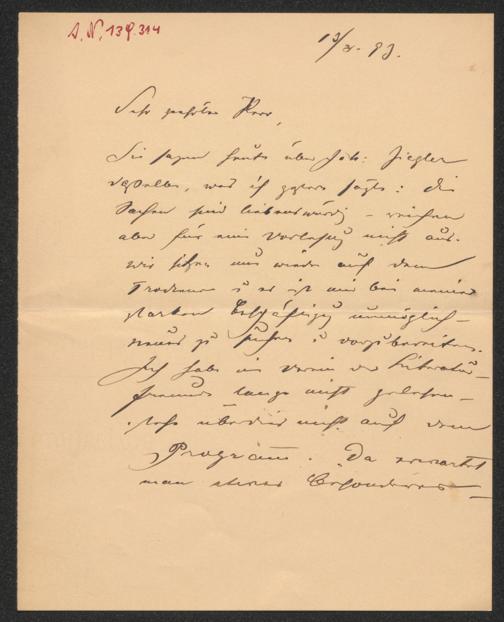 A.N. 139.314
13/X. 93.
Sehr geehrter Herr,
Sie sagen heute über Joh: Ziegler
dasselbe, was ich gestern sagte: die
Sachen sind liebenswürdig – reichen
aber für eine Vorlesung nicht aus.
Wir sitzen nun wieder auf dem
Trockenen u es ist mir bei meiner
starken Beschäftigung unmöglich –
neues zu suchen u vorzubereiten.
Ich habe im Verein der Literatur-
freunde lange nicht gelesen –
stehe überdies nicht auf dem
Programm. Da erwartet
man etwas Besonderes –